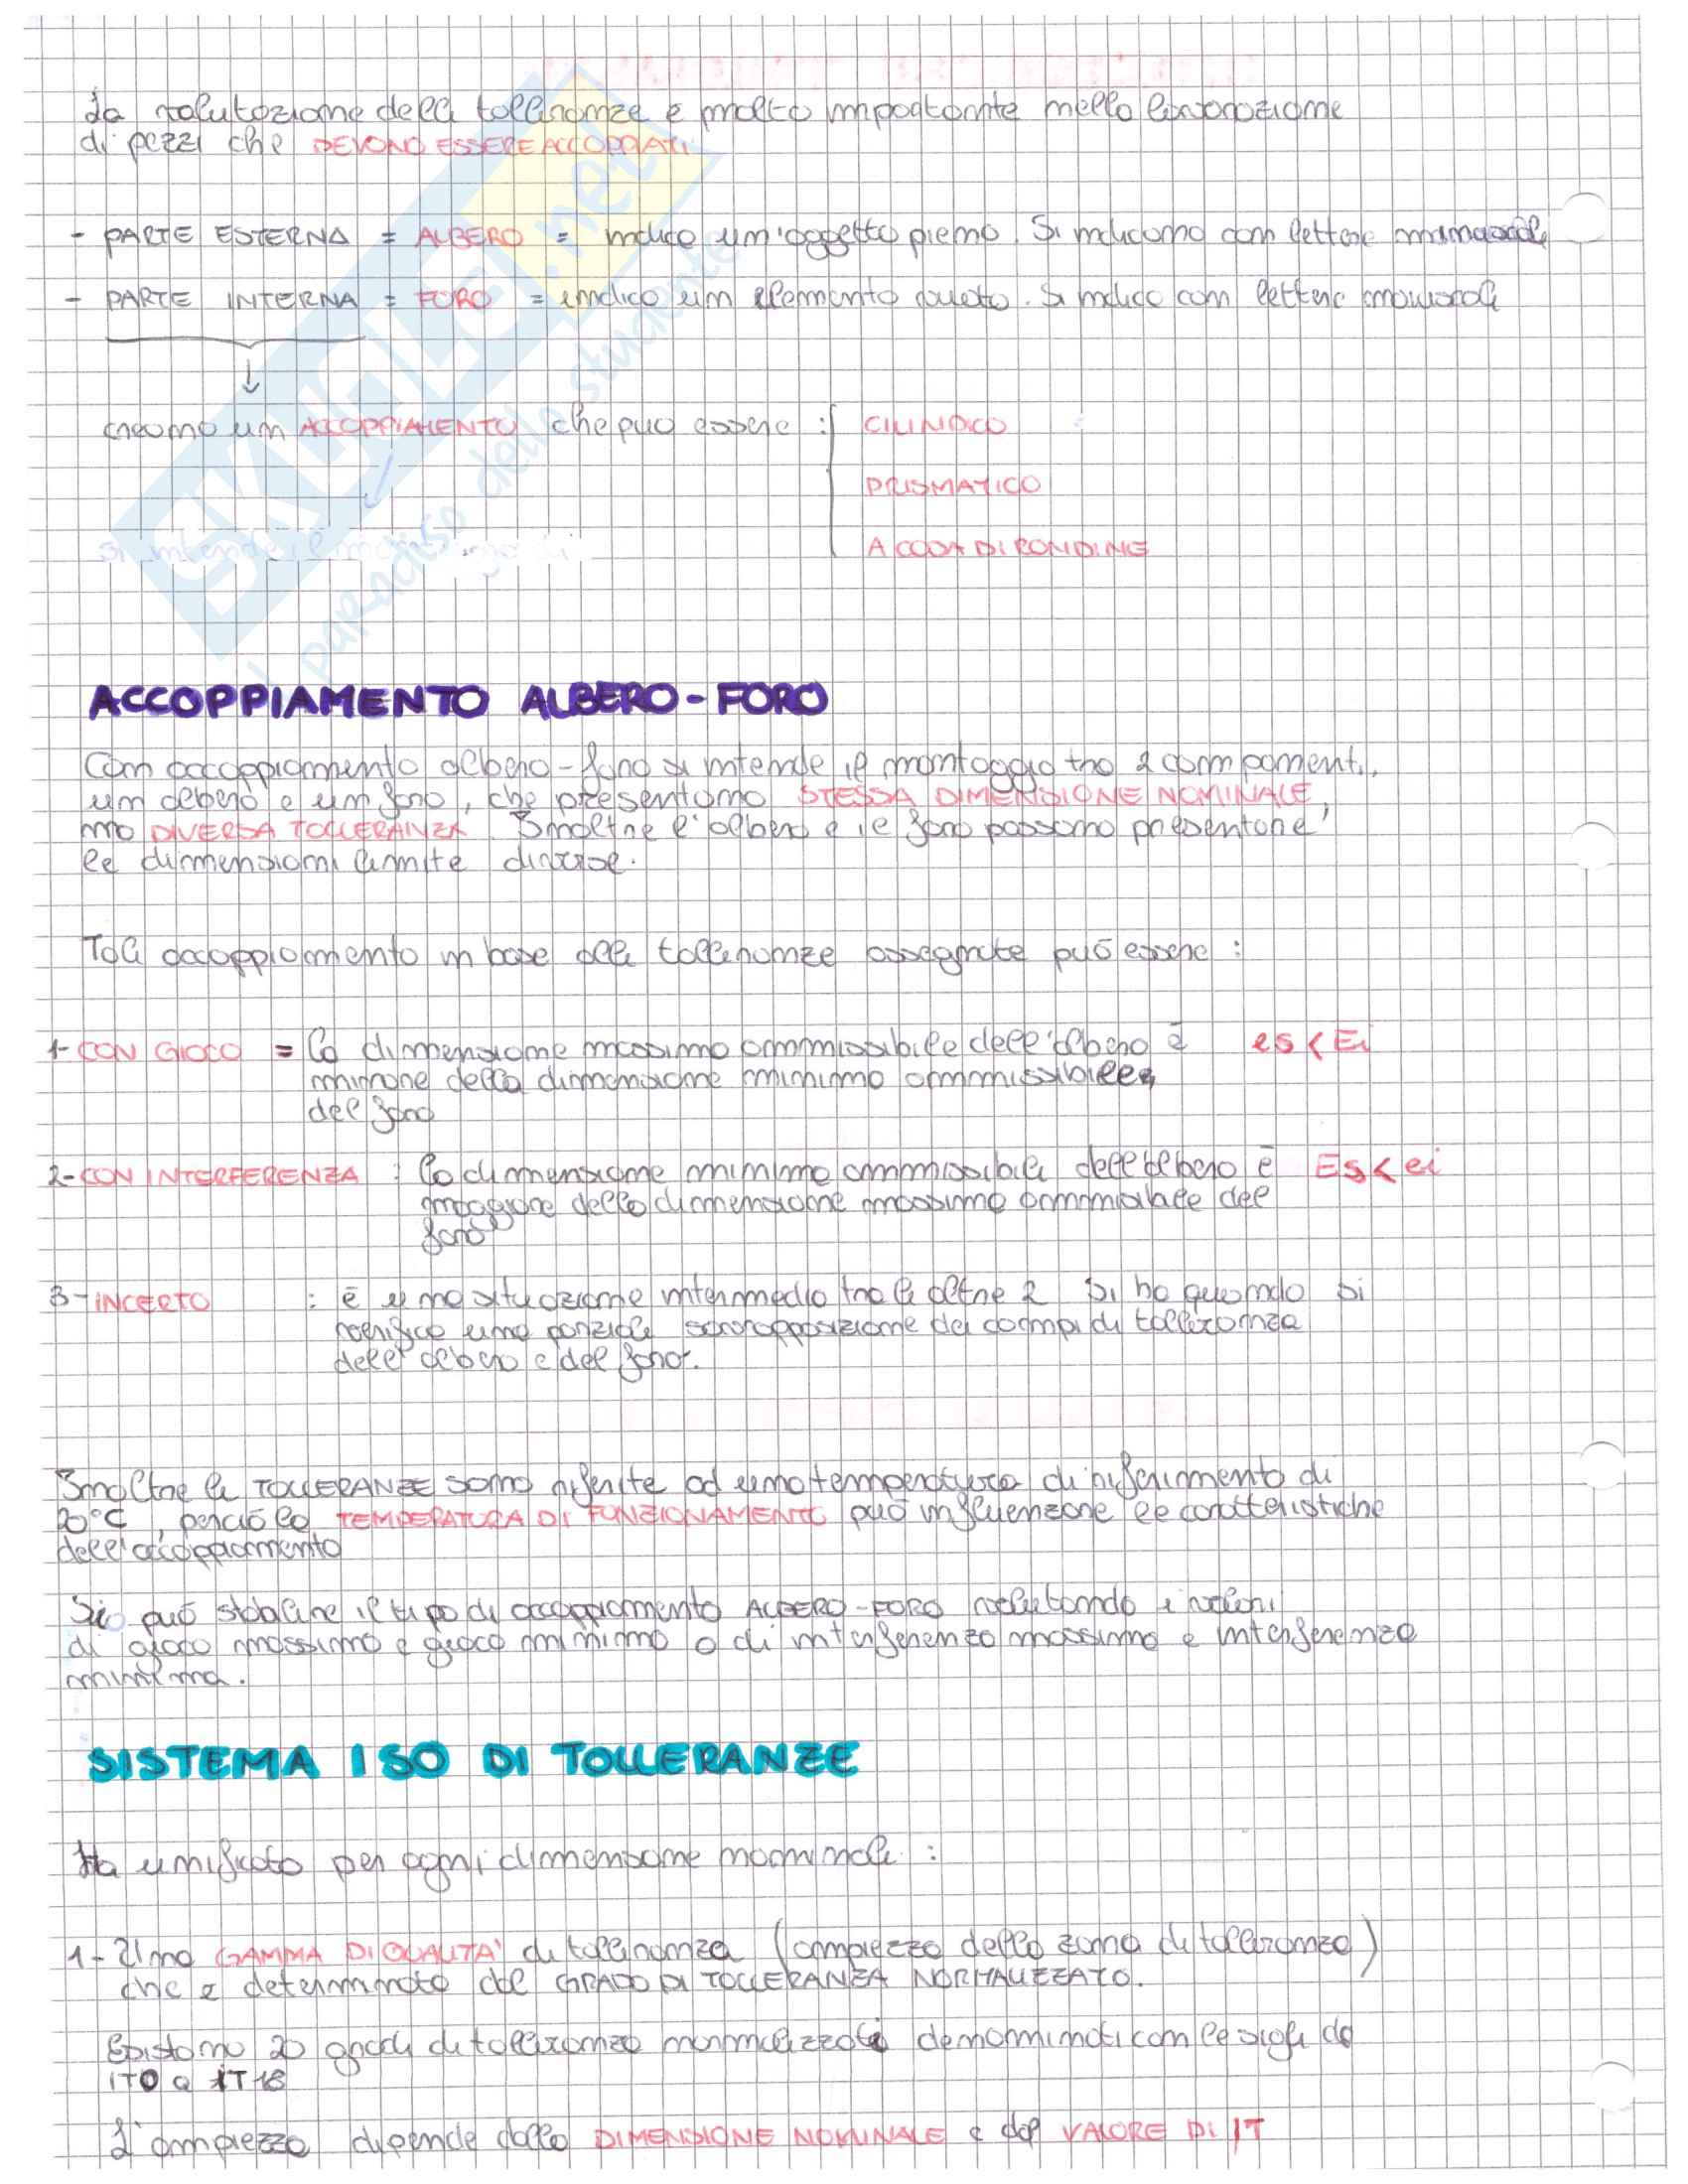 La valutazione delle tolleranze è molto importante nella lavorazione
di pezzi che DEVONO ESSERE ACCOPPIATI
- PARTE ESTERNA = ALBERO = indica un'oggetto pieno. Si indicano con lettere minuscole
- PARTE INTERNA = FORO = indica un elemento cavo. Si indica con lettere maiuscole
creano un ACCOPPIAMENTO che può essere : CILINDICO
PRISMATICO
A CODA DI RONDINE
si intende il
SKUOLA.net
il paradiso dello studente
ACCOPPIAMENTO ALBERO-FORO
Con accoppiamento albero-foro si intende il montaggio tra 2 componenti,
un albero e un foro, che presentano STESSA DIMENSIONE NOMINALE,
ma DIVERSA TOLLERANZA. Inoltre l'albero e il foro possono presentare
le dimensioni limite diverse.
Tale accoppiamento in base alle tolleranze assegnate può essere :
1- CON GIOCO = la dimensione massima ammissibile dell'albero è es < Ei
minore della dimensione minima ammissibile
del foro
2- CON INTERFERENZA : la dimensione minima ammissibile dell'albero è Es < ei
maggiore della dimensione massima ammissibile del
foro
3- INCERTO : è una situazione intermedia tra le altre 2 Si ha quando si
verifica una parziale sovrapposizione dei campi di tolleranza
dell'albero e del foro.
Inoltre le TOLLERANZE sono riferite ad una temperatura di riferimento di
20°C, perciò la TEMPERATURA DI FUNZIONAMENTO può influenzare le caratteristiche
dell'accoppiamento
Si può stabilire il tipo di accoppiamento ALBERO-FORO valutando i valori
di gioco massimo e gioco minimo o di interferenza massima e interferenza
minima.
SISTEMA ISO DI TOLLERANZE
Ha unificato per ogni dimensione nominale :
1- Una GAMMA DI QUALITA' di tolleranza (ampiezza della zona di tolleranza)
che è determinata dal GRADO DI TOLLERANZA NORMALIZZATO.
Esistono 20 gradi di tolleranza normalizzati denominati con le sigle da
IT0 a IT18
L'ampiezza dipende dalla DIMENSIONE NOMINALE e dal VALORE DI IT